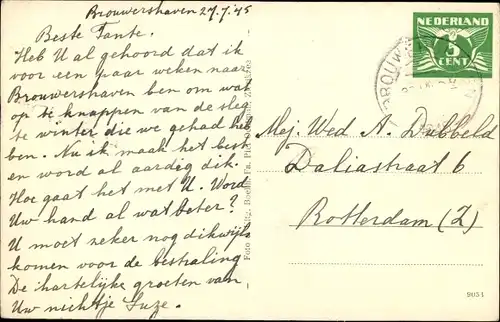 Brouwershaven 27.7.'45
Beste Tante.
Heb U al gehoord dat ik
voor een paar weken naar
Brouwershaven ben om wat
op te knappen van de sleg
te winter die we gehad heb
ben. Nu ik maak het best
en word al aardig dik.
Hoe gaat het met U. Word
Uw hand al wat beter?
U moet zeker nog dikwijls
komen voor de bestraling
De hartelijke groeten van
Uw nichtje Suze.
NEDERLAND
5
CENT
Mej. Wed A. Dubbeld
Daliastraat 6
Rotterdam (Z)
9051